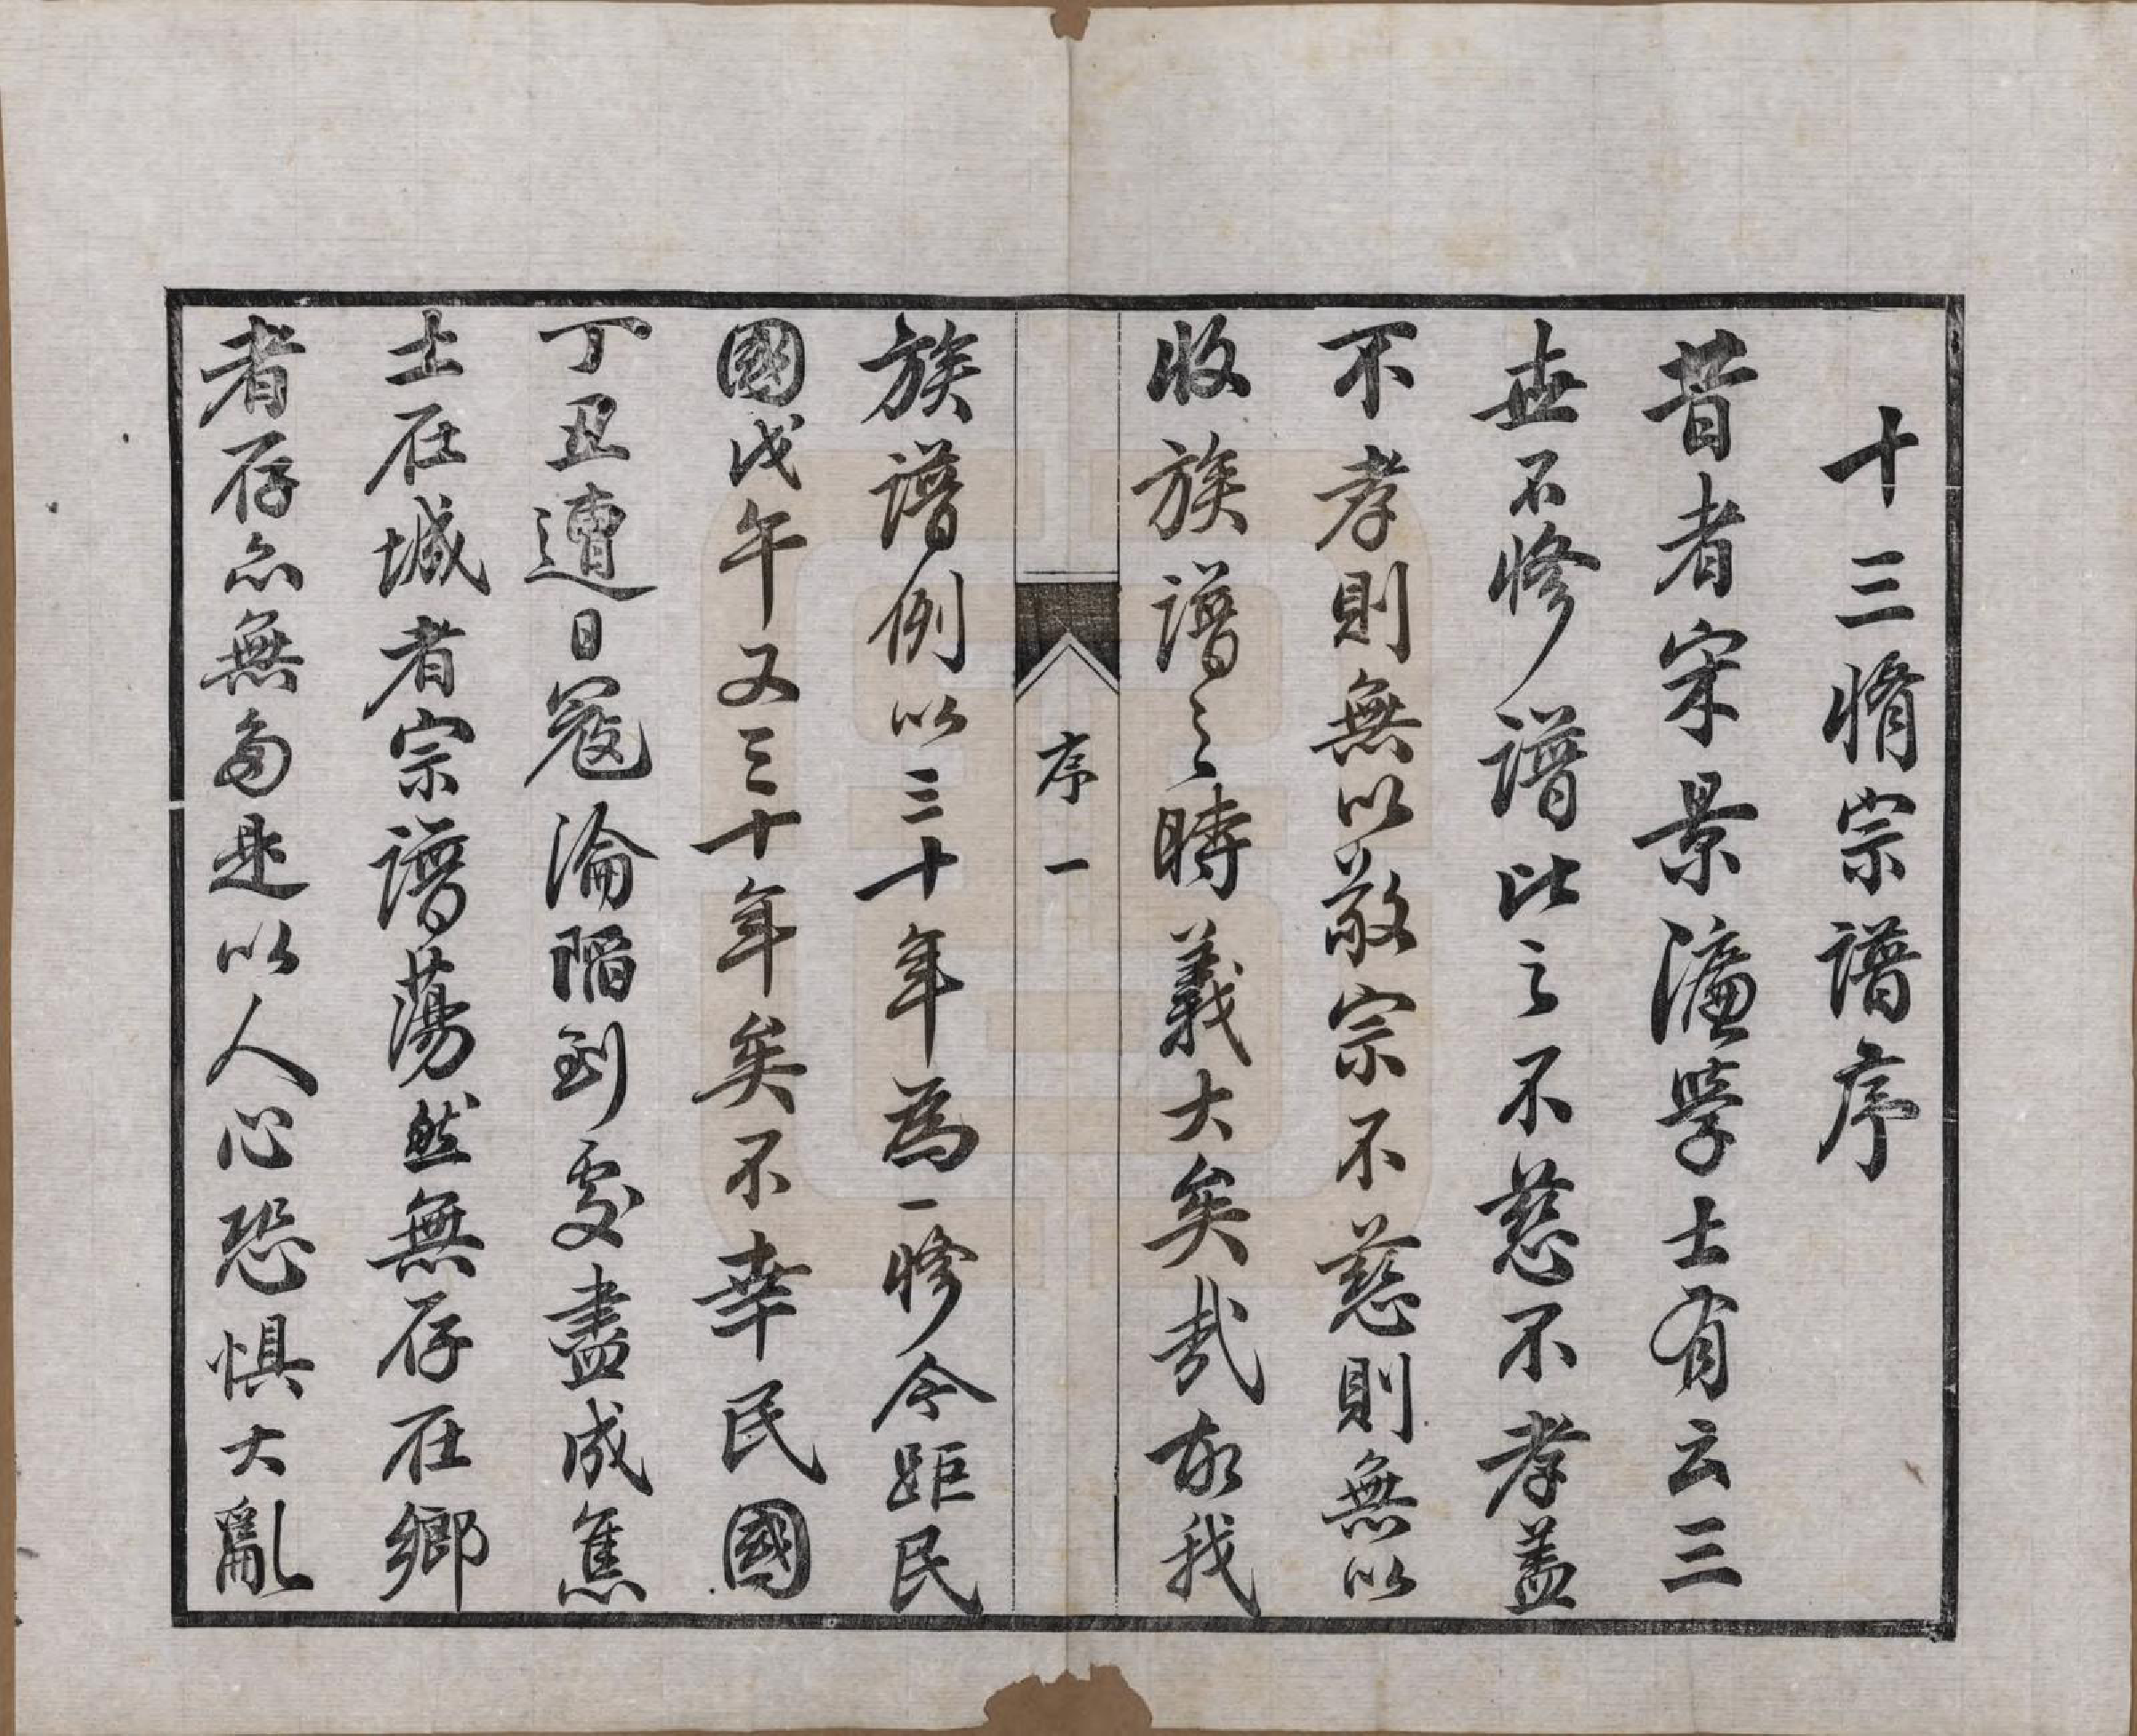 十三脩宗譜序
昔者宋景濂學士有云三
世不修譜比之不慈不孝蓋
不孝則無以敬宗不慈則無以
收族譜之時義大矣哉故我
序一
族譜例以三十年為一修今距民
國戊午又三十年矣不幸民國
丁丑遭日寇淪陷到處盡成焦
土在城者宗譜蕩然無存在鄉
者存亦無多是以人心恐懼大亂